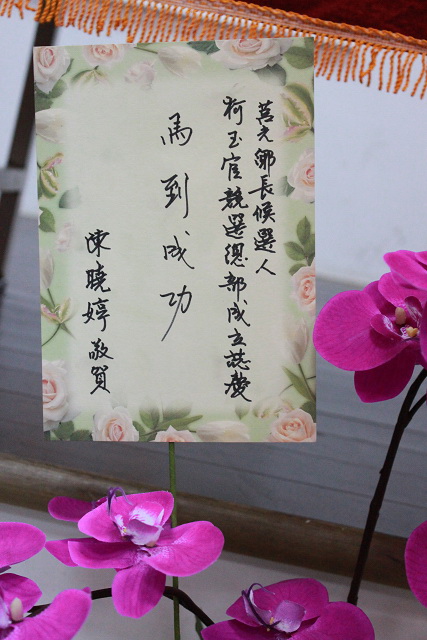 莒光鄉長候選人
柯玉官競選總部成立誌慶
馬到成功
陳曉婷敬賀